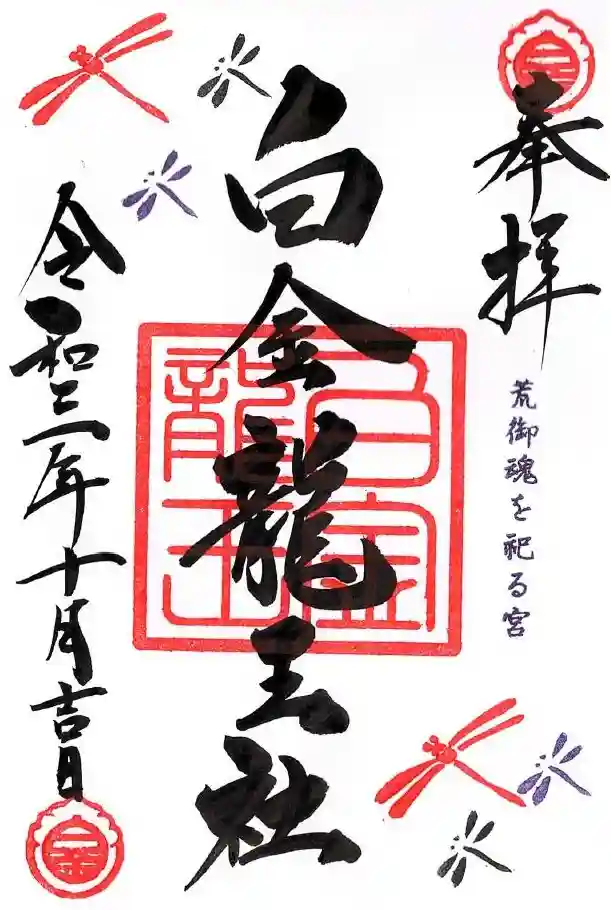 奉拝
荒御魂を祀る宮
白金龍王社
白金
龍王
令和三年十月吉日